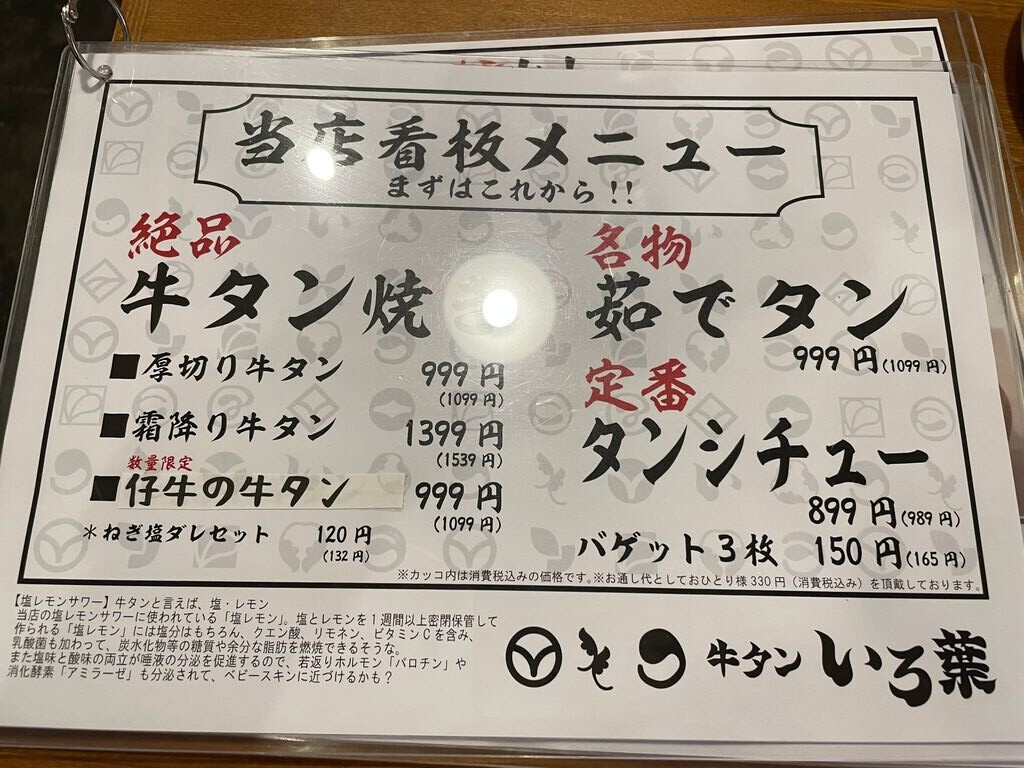 当店看板メニュー
まずはこれから!!
絶品
牛タン焼
■厚切り牛タン 999円
(1099円)
■霜降り牛タン 1399円
(1539円)
数量限定
■仔牛の牛タン 999円
(1099円)
*ねぎ塩ダレセット 120円
(132円)
名物
茹でタン
999円(1099円)
定番
タンシチュー
899円(989円)
バゲット3枚 150円(165円)
※カッコ内は消費税込みの価格です。※お通し代としておひとり様330円(消費税込み)を頂戴しております。
【塩レモンサワー】牛タンと言えば、塩・レモン
当店の塩レモンサワーに使われている「塩レモン」。塩とレモンを1週間以上密閉保管して
作られる「塩レモン」には塩分はもちろん、クエン酸、リモネン、ビタミンCを含み、
乳酸菌も加わって、炭水化物等の糖質や余分な脂肪を燃焼できるそうな。
また塩味と酸味の両立が唾液の分泌を促進するので、若返りホルモン「パロチン」や
消化酵素「アミラーゼ」も分泌されて、ベビースキンに近づけるかも?
牛タン いろ葉